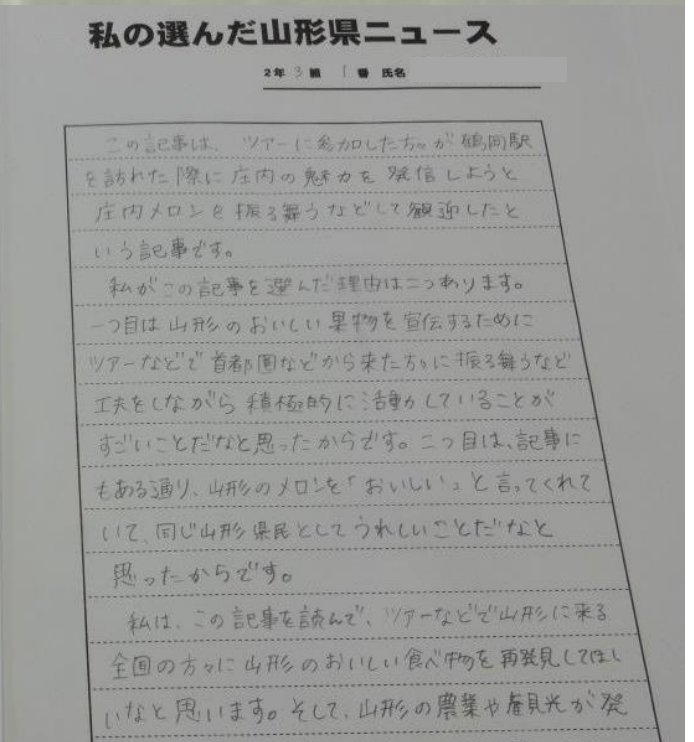 私の選んだ山形県ニュース
2年 3 組 1 番 氏名
この記事は、ツアーに参加した方々が鶴岡駅
を訪れた際に庄内の魅力を発信しようと
庄内メロンを振る舞うなどして歓迎したと
いう記事です。
私がこの記事を選んだ理由は二つあります。
一つ目は山形のおいしい果物を宣伝するために
ツアーなどで首都圏などから来た方々に振る舞うなど
工夫をしながら積極的に活動していることが
すごいことだなと思ったからです。二つ目は、記事に
もある通り、山形のメロンを「おいしい」と言ってくれて
いて、同じ山形県民としてうれしいことだなと
思ったからです。
私は、この記事を読んで、ツアーなどで山形に来る
全国の方々に山形のおいしい食べ物を再発見してほし
いなと思います。そして、山形の農業や観光が発